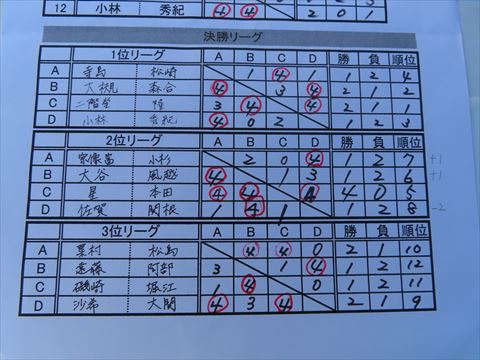 12 小林 秀紀 ④ ④ 2 0 1
決勝リーグ
1位リーグ A B C D 勝 負 順位
A 寺島 松崎 1 ④ 1 1 2 4
B 大槻 森合 ④ 3 ④ 2 1 2
C 二階堂 陸 3 ④ ④ 2 1 1
D 小林 秀紀 ④ 0 2 1 2 3
2位リーグ A B C D 勝 負 順位
A 宗像 小杉 2 0 ④ 1 2 7 +1
B 大谷 風越 ④ 1 3 1 2 6 +1
C 星 本田 ④ ④ ④ 4 0 5
D 佐賀 関根 1 ④ 1 1 2 8 -2
3位リーグ A B C D 勝 負 順位
A 栗村 松島 ④ ④ 0 2 1 10
B 遠藤 阿部 3 1 ④ 1 2 12
C 磯崎 堀江 1 ④ 0 1 2 11
D 沙希 大関 ④ 3 ④ 2 1 9